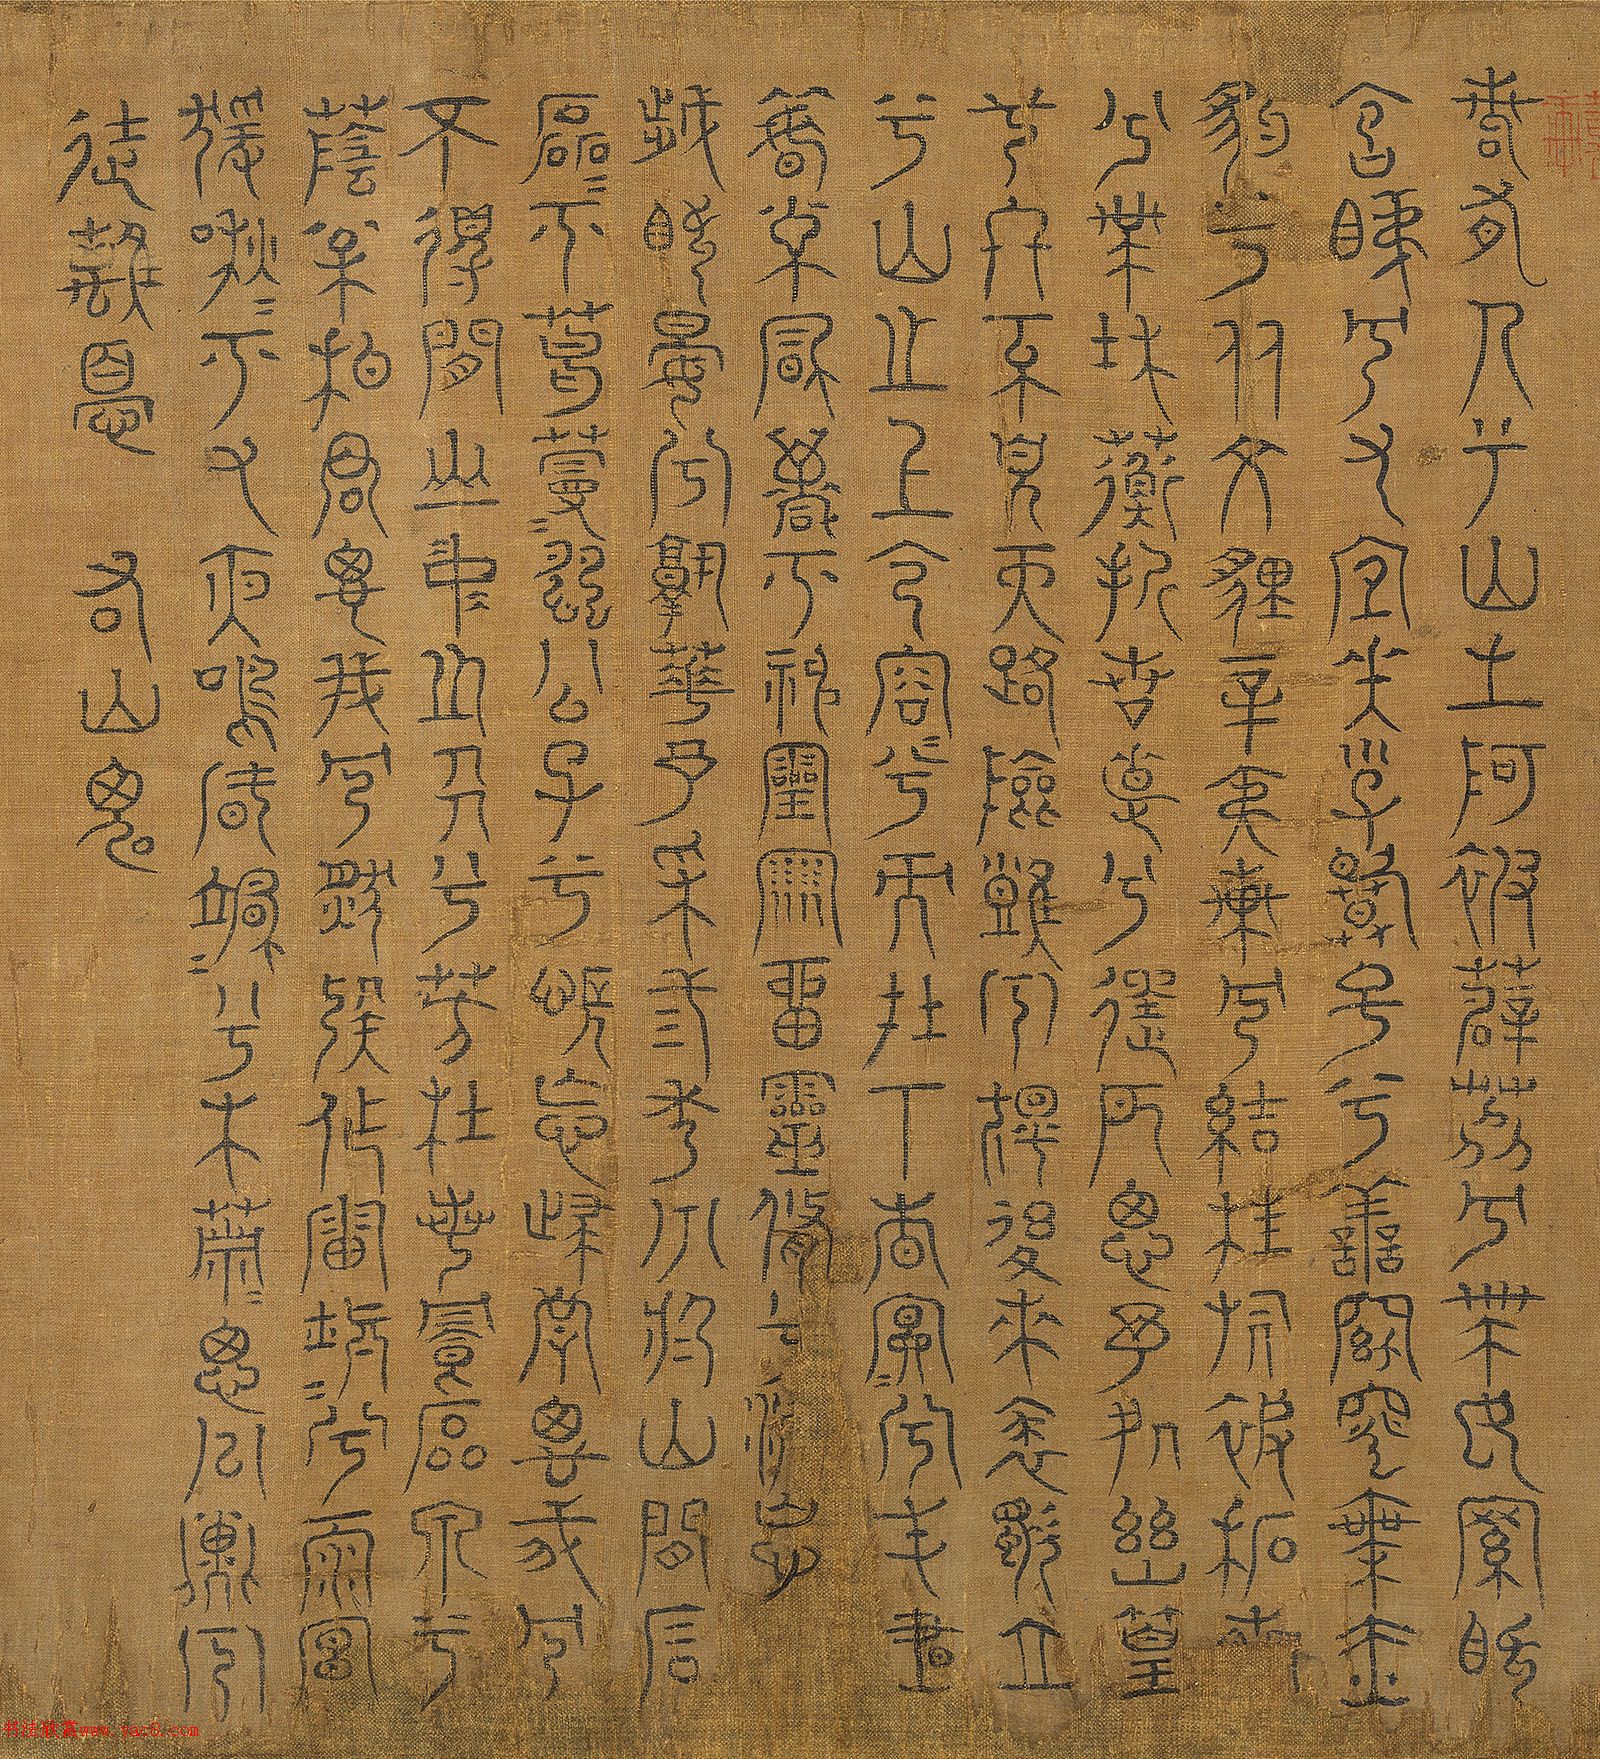 若有人兮山之阿被薜荔兮帶女羅既
含睇兮又宜笑子慕予兮善窈窕乘赤
豹兮從文貍辛夷車兮結桂旗被石蘭
兮帶杜衡折芳馨兮遺所思余處幽篁
兮終不見天路險難兮獨後來表獨立
兮山之上雲容容兮而在下杳冥冥兮羌晝
晦東風飄兮神靈雨留靈脩兮憺忘
歲既晏兮孰華予采三秀兮於山間石
磊磊兮葛蔓蔓怨公子兮悵忘歸君思我兮
不得閒山中人兮芳杜若飲石泉兮
蔭松柏君思我兮然疑作雷填填兮雨冥
猨啾啾兮又夜鳴風颯颯兮木蕭蕭思公子兮
徒離憂 右山鬼
书法欣赏www.yac8.com